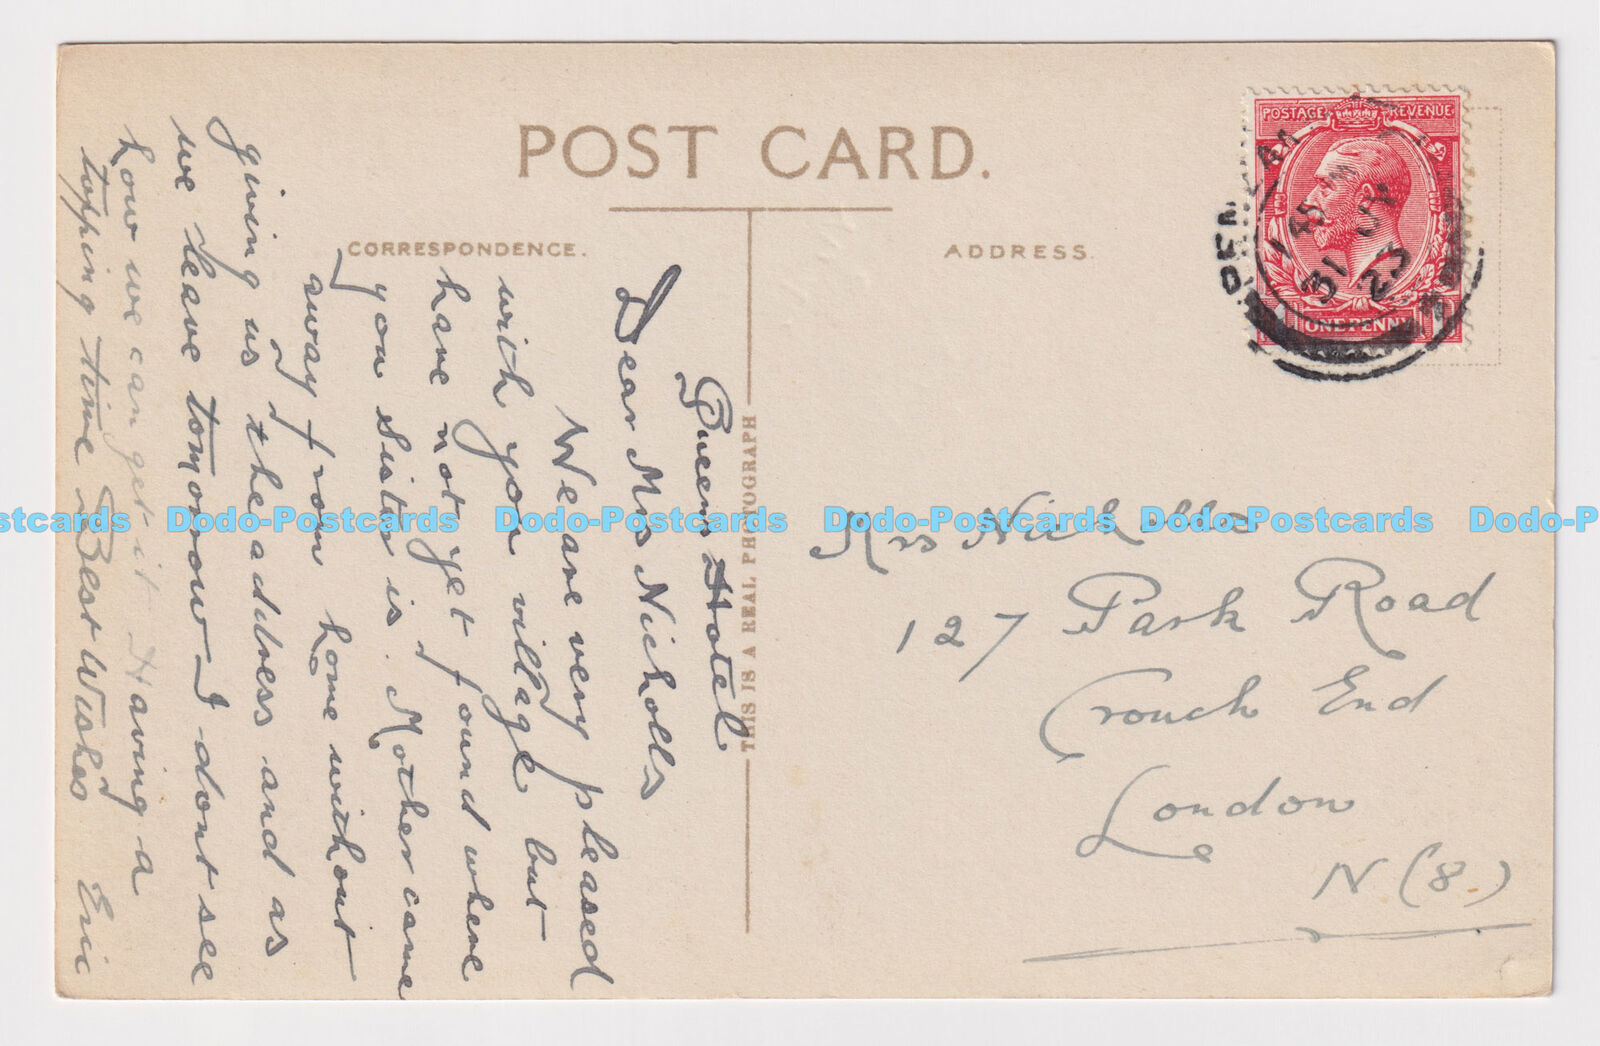 POST CARD.
CORRESPONDENCE.
ADDRESS.
THIS IS A REAL PHOTOGRAPH
POSTAGE REVENUE
ONE PENNY
31 23
Queens Hotel
Dear Mrs Nicholls
We are very pleased
with your village but
have not yet found where
you Sister is. Mother came
away from home without
giving us the address and as
we leave tomorrow I dont see
how we can get it. Having a
topping time. Best Wishes Eric
Mrs Nicholls
127 Park Road
Crouch End
London
N (8.)
Dodo-Postcards Dodo-Postcards Dodo-Postcards Dodo-Postcards